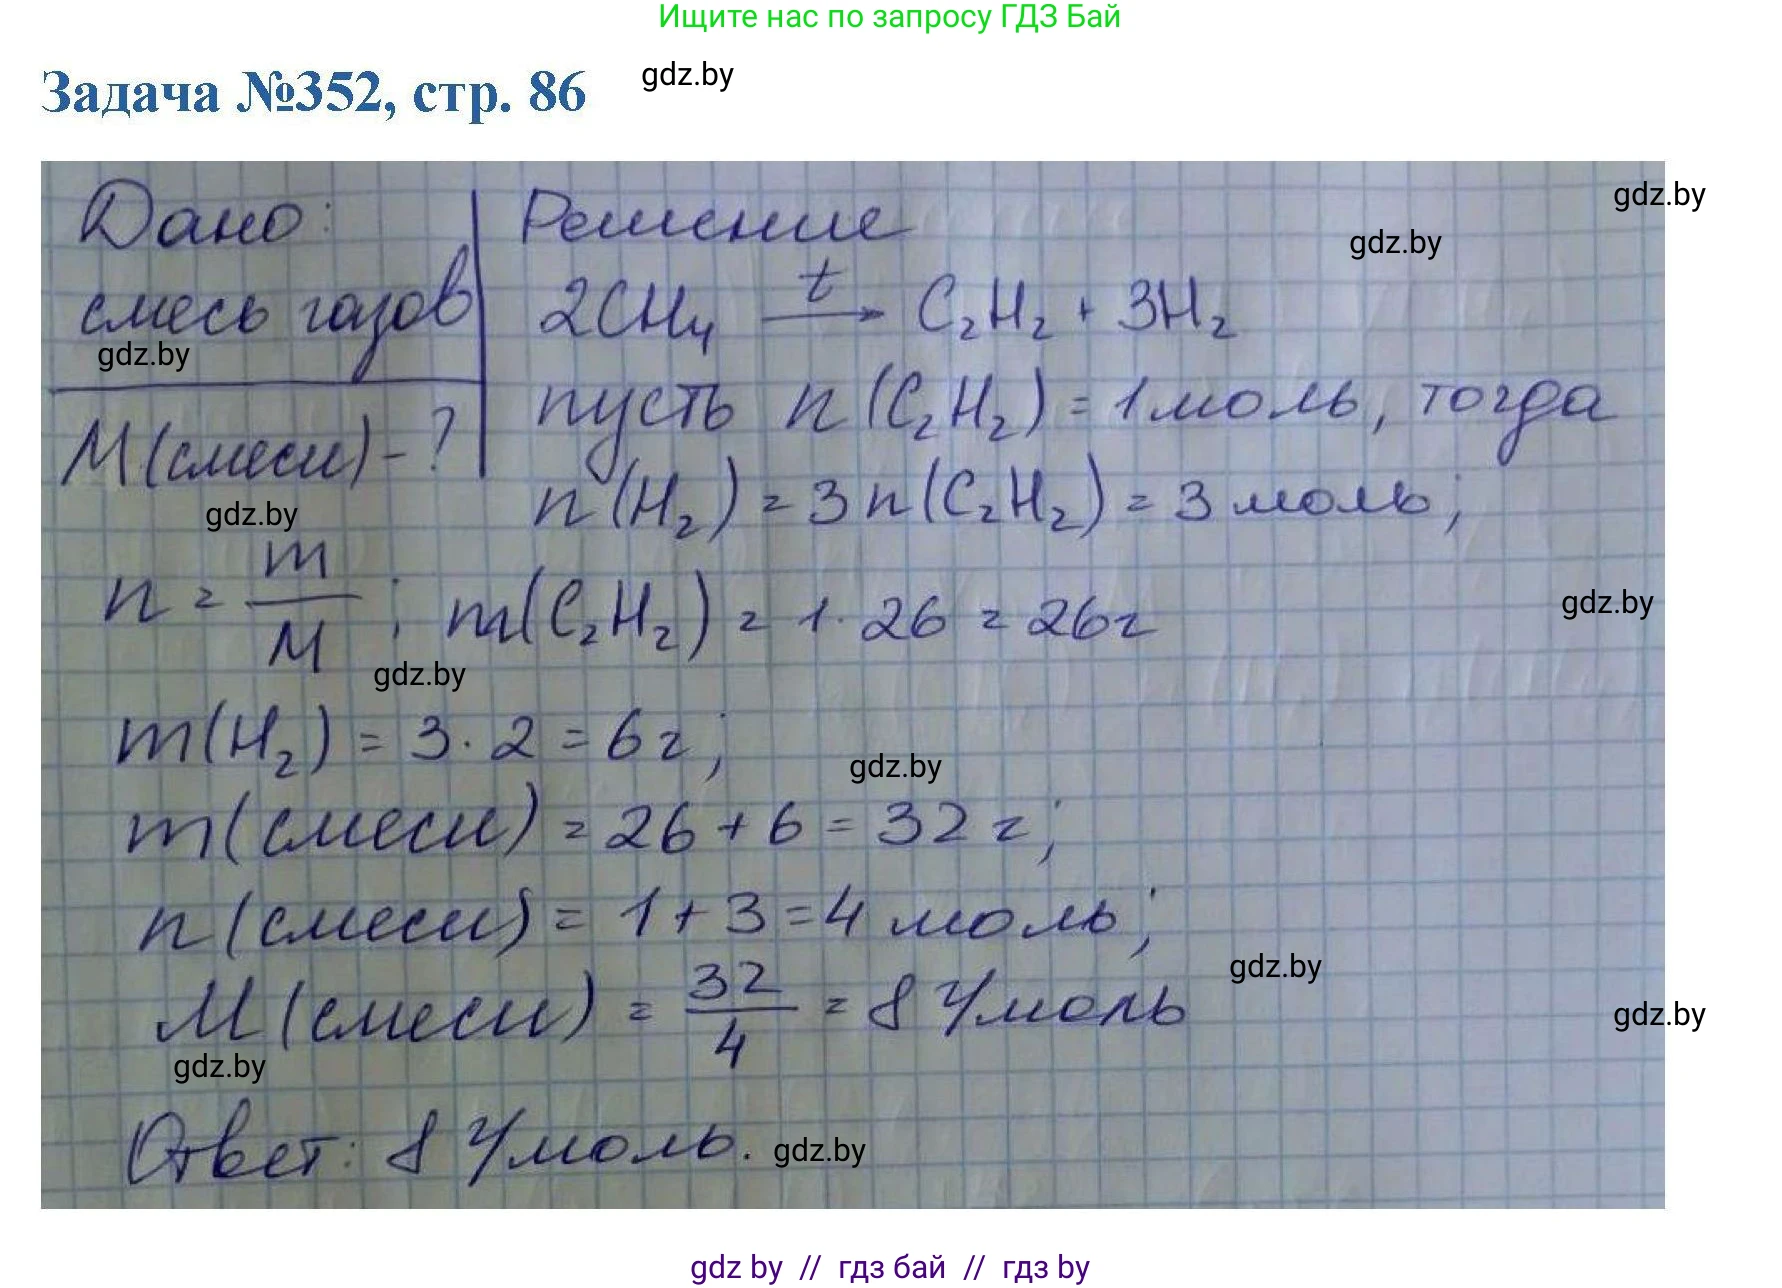 Ищите нас по запросу ГДЗ Бай
Задача №352, стр. 86
gdz.by
Дано:
Решение
gdz.by
gdz.by
смесь газов
2CH₄ —t→ C₂H₂ + 3H₂
gdz.by
пусть n(C₂H₂) = 1 моль, тогда
M(смеси) - ?
n(H₂) = 3n(C₂H₂) = 3 моль;
gdz.by
n = m/M; m(C₂H₂) = 1 · 26 = 26г
gdz.by
gdz.by
m(H₂) = 3 · 2 = 6г;
gdz.by
m(смеси) = 26 + 6 = 32 г;
n(смеси) = 1 + 3 = 4 моль;
gdz.by
M(смеси) = 32/4 = 8 г/моль
gdz.by
gdz.by
Ответ: 8 г/моль.
gdz.by
gdz by // гдз бай // гдз by